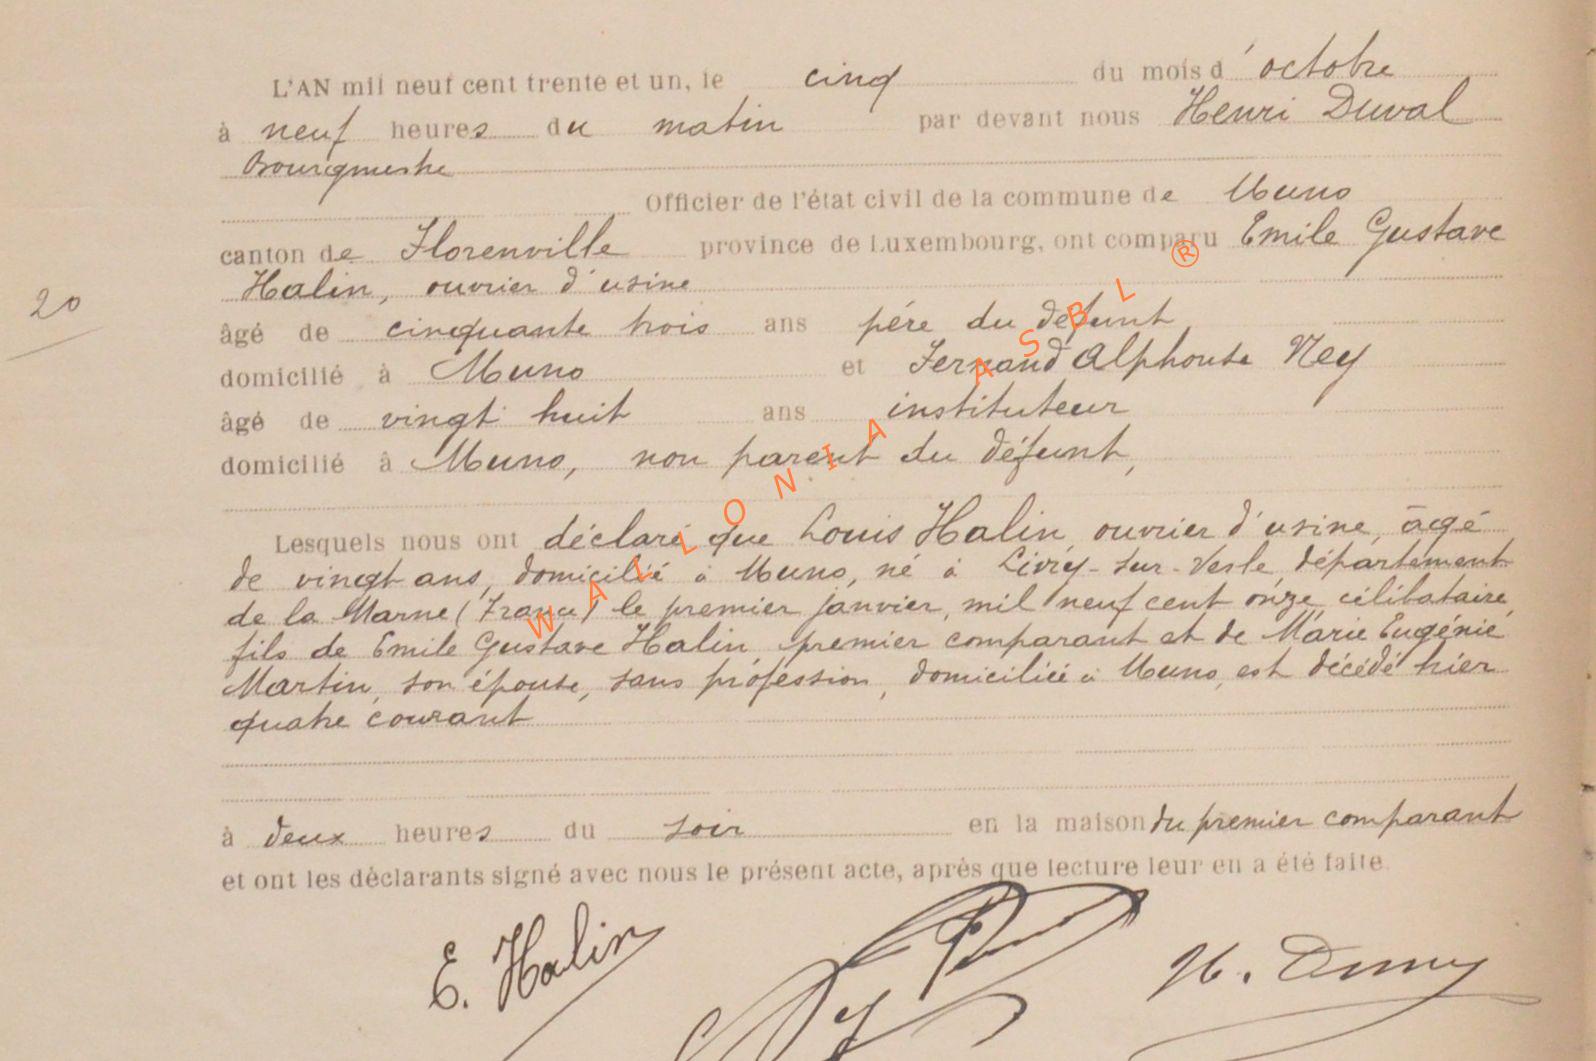 L'AN mil neuf cent trente et un, le cinq du mois d'octobre
à neuf heures du matin par devant nous Henri Duval
Bourgmestre
Officier de l'état civil de la commune de Muno
canton de Florenville province de Luxembourg, ont comparu Emile Gustave
Halin, ouvrier d'usine
20
âgé de cinquante trois ans père du défunt
domicilié à Muno et Fernand Alphonse Ney
âgé de vingt huit ans instituteur
domicilié à Muno, non parent du défunt,
Lesquels nous ont déclaré que Louis Halin, ouvrier d'usine, âgé
de vingt ans, domicilié à Muno, né à Livry-sur-Vesle, département
de la Marne (France) le premier janvier, mil neuf cent onze, célibataire,
fils de Emile Gustave Halin, premier comparant et de Marie Eugénie
Martin, son épouse, sans profession, domiciliée à Muno, est décédé hier
quatre courant
à deux heures du soir en la maison du premier comparant
et ont les déclarants signé avec nous le présent acte, après que lecture leur en a été faite.
E. Halin
WALLONIA ASBL ®